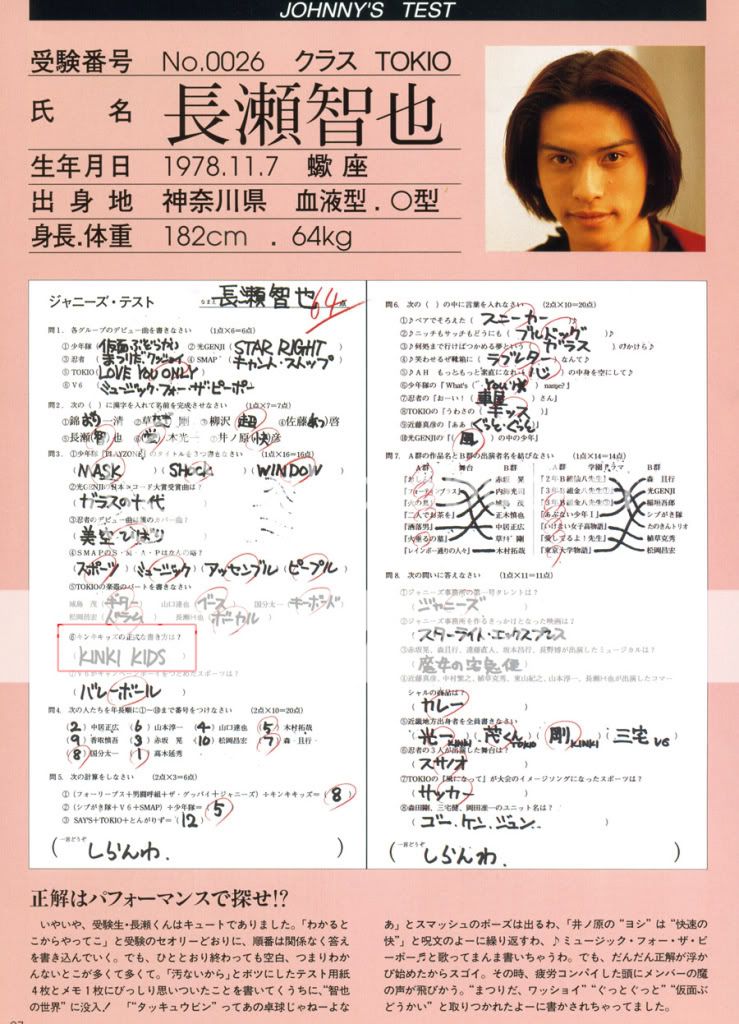 JOHNNY'S TEST
受験番号 No.0026 クラス TOKIO
氏名 長瀬智也
生年月日 1978.11.7 蠍座
出身地 神奈川県 血液型.○型
身長.体重 182cm . 64kg
ジャニーズ・テスト なまえ 長瀬智也 64点
問1．各グループのデビュー曲を書きなさい (1点×6=6点)
①少年隊 ②光GENJI (STAR RIGHT)
③忍者 ④SMAP (キャント・ストップ)
⑤TOKIO (LOVE YOU ONLY)
⑥V6 (ミュージック・フォー・ザ・ピーポー)
問2．次の( )に漢字を入れて名前を完成させなさい (1点×7=7点)
(MASK) (SHOCK) (WINDOW)
(ガラスの十代)
(美空ひばり)
(スポーツ) (ミュージック) (アッセンブル) (ピープル)
⑤TOKIOの楽器のパートを書きなさい
城島 茂 (ギター) 山口達也 (ベース) 国分太一 (キーボード)
松岡昌宏 (ドラム) 長瀬智也 (ボーカル)
⑥キンキキッズの正式な書き方は？
(KINKI KIDS)
(バレーボール)
問4．次の人たちを年長順に①～⑩まで番号をつけなさい (2点×10=20点)
(2) 中居正広 (6) 山本淳一 (4) 山口達也 (5) 木村拓哉
(9) 香取慎吾 (3) 赤坂 晃 (10) 松岡昌宏 (7) 森 且行
(8) 国分太一 (1) 高木延秀
問5．次の計算をしなさい (2点×3=6点)
①(フォーリーブス+男闘呼組+ザ・グッバイ+ジャニーズ)÷キンキキッズ=(8)
②(シブがき隊+V6+SMAP)÷少年隊=(5)
③ SAY'S+TOKIO+とんがりず=(12)
一言どうぞ
(しらんわ.)
問6．次の( )の中に言葉を入れなさい (2点×10=20点)
①♪ペアでそろえた(スニーカー)♪
②♪ニッチもサッチもどうにも(ブルドッグ)
③♪何処まで行けばつかめる夢という(ガラス)のかけら♪
④♪笑わせるぜ靴箱に(ラブレター)なんて♪
⑤♪AH もっともっと素直になれ(心)の中身を空にして♪
⑦忍者の「おーい！(車屋)さん」
⑧TOKIOの「うわさの(キッス)」
⑨近藤真彦の「ああ(ぐっと・ぐっと)」
⑩光GENJIの「(風)の中の少年」
問7．A群の作品名とB群の出演者名を結びなさい (1点×14=14点)
A群 舞台 B群 A群 学園ドラマ B群
赤坂 晃 森 且行
内海光司 光GENJI
城島 茂 稲垣吾郎
「二人でお茶を」 正木慎也 「あぶない少年Ⅰ」 シブがき隊
「洒落男」 中居正広 「いけない女子高物語」 たのきんトリオ
「火垂るの墓」 草彅 剛 「愛してるよ！先生」 植草克秀
「レインボー通りの人々」 木村拓哉 「東京大学物語」 松岡昌宏
問8．次の問いに答えなさい (1点×11=11点)
①ジャニーズ事務所の第一号タレントは？
(ジャニーズ)
②ジャニーズ事務所を作るきっかけとなった映画は？
(スターライト・エックスプレス)
③赤坂晃、森且行、遠藤直人、坂本昌行、長野博が出演したミュージカルは？
(魔女の宅急便)
④近藤真彦、中村繁之、植草克秀、東山紀之、山本淳一、長瀬智也が出演したコマーシャルの商品は？
(カレー)
⑤近畿地方出身者を全員書きなさい
(光一KINKI 茂くんTOKIO 剛KINKI 三宅V6)
⑥忍者の3人が出演した舞台は？
(スサノオ)
⑦TOKIOの「風になって」が大会のイメージソングになったスポーツは？
(サッカー)
⑧森田剛、三宅健、岡田准一のユニット名は？
(ゴー・ケン・ジュン)
一言どうぞ
(しらんわ.)
正解はパフォーマンスで探せ!?
いやいや、受験生・長瀬くんはキュートでありました。「わかると
こからやってこ」と受験のセオリーどおりに、順番は関係なく答え
を書き込んでいく。でも、ひととおり終わっても空白、つまりわか
んないとこが多くて多くて。「汚ないから」とボツにしたテスト用紙
4枚とメモ1枚にびっしり思いついたことを書いてくうちに、“智也
の世界”に没入！「“タッキュウビン”ってあの卓球じゃねーよな
あ」とスマッシュのポーズは出るわ、「井ノ原の“ヨシ”は“快速の
快”」と呪文のよーに繰り返すわ、♪ミュージック・フォー・ザ・ピ
ーポー♬と歌ってまんま書いちゃうわ。でも、だんだん正解が浮か
び始めたからスゴイ。その時、疲労コンパイした頭にメンバーの魔
の声が飛びかう。“まつりだ、ワッショイ”“ぐっとぐっと”“仮面ぶ
どうかい”と取りつかれたよーに書かされちゃってました。